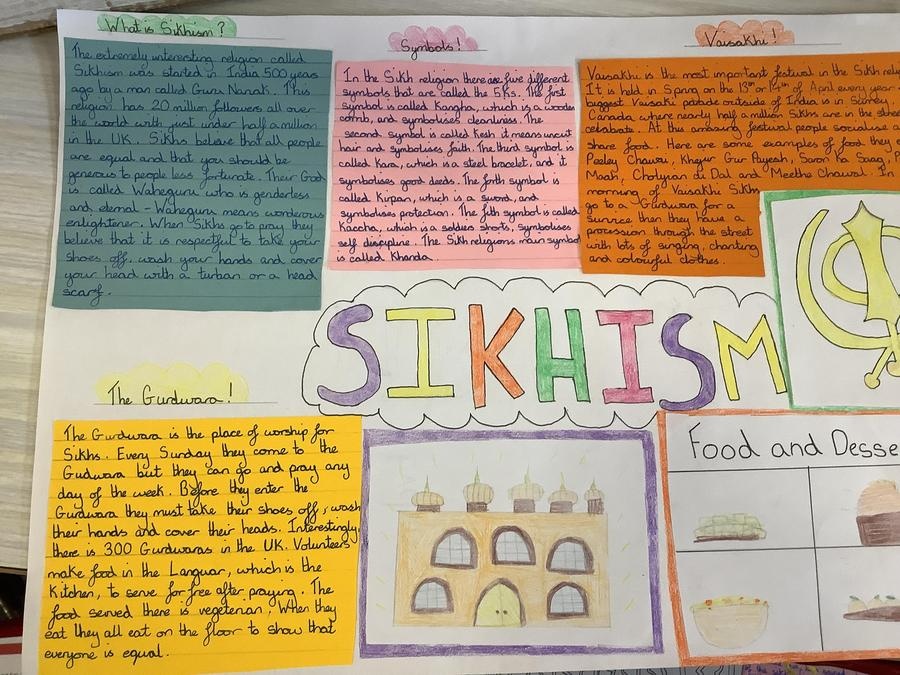 What is Sikhism?
The extremely interesting religion called
Sikhism was started in India 500 years
ago by a man called Guru Nanak. This
religion has 20 million followers all over
the world with just under half a million
in the UK. Sikhs believe that all people
are equal and that you should be
generous to people less fortunate. Their God
is called Waheguru who is genderless
and eternal - Waheguru means wonderous
enlightener. When Sikhs go to pray they
believe that it is respectful to take your
shoes off, wash your hands and cover
your head with a turban or a head
scarf.
Symbols!
In the Sikh religion there are five different
symbols that are called the 5Ks. The first
symbol is called Kangha, which is a wooden
comb, and symbolises cleanliness. The
second symbol is called Kesh it means uncut
hair and symbolises faith. The third symbol is
called Kara, which is a steel bracelet and it
symbolises good deeds. The forth symbol is
called Kirpan, which is a sword, and
symbolises protection. The fith symbol is called
Kaccha, which is a soldiers shorts, symbolises
self discipline. The Sikh religions main symbol
is called Khanda.
Vaisakhi!
Vaisakhi is the most important festival in the Sikh
It is held in Spring on the 13th or 14th of April every year
biggest Vaisaki parade outside of India is in Surrey,
Canada, where nearly half a million Sikhs are in the
celebrate. At this amazing festival people socialise
share food. Here are some examples of food they
Peeley Chawai, Kheyur Gur Payesh, Saron ka Saag,
Moah, Cholyian di Dal and Meethe Chawal. In
morning of Vaisakhi Sikhs
go to a Gurdwara for a
sunrice then they have a
procession through the street
with lots of singing, chanting
and colourful clothes.
SIKHISM
The Gurdwara!
The Gurdwara is the place of worship for
Sikhs. Every Sunday they come to the
Gudwara but they can go and pray any
day of the week. Before they enter the
Gurdwara they must take their shoes off, wash
their hands and cover their heads. Interestingly,
there is 300 Gurdwaras in the UK. Volunteers
make food in the Languar, which is the
Kitchen, to serve for free after praying. The
food served there is vegeterian. When they
eat they all eat on the floor to show that
everyone is equal.
Food and Desse